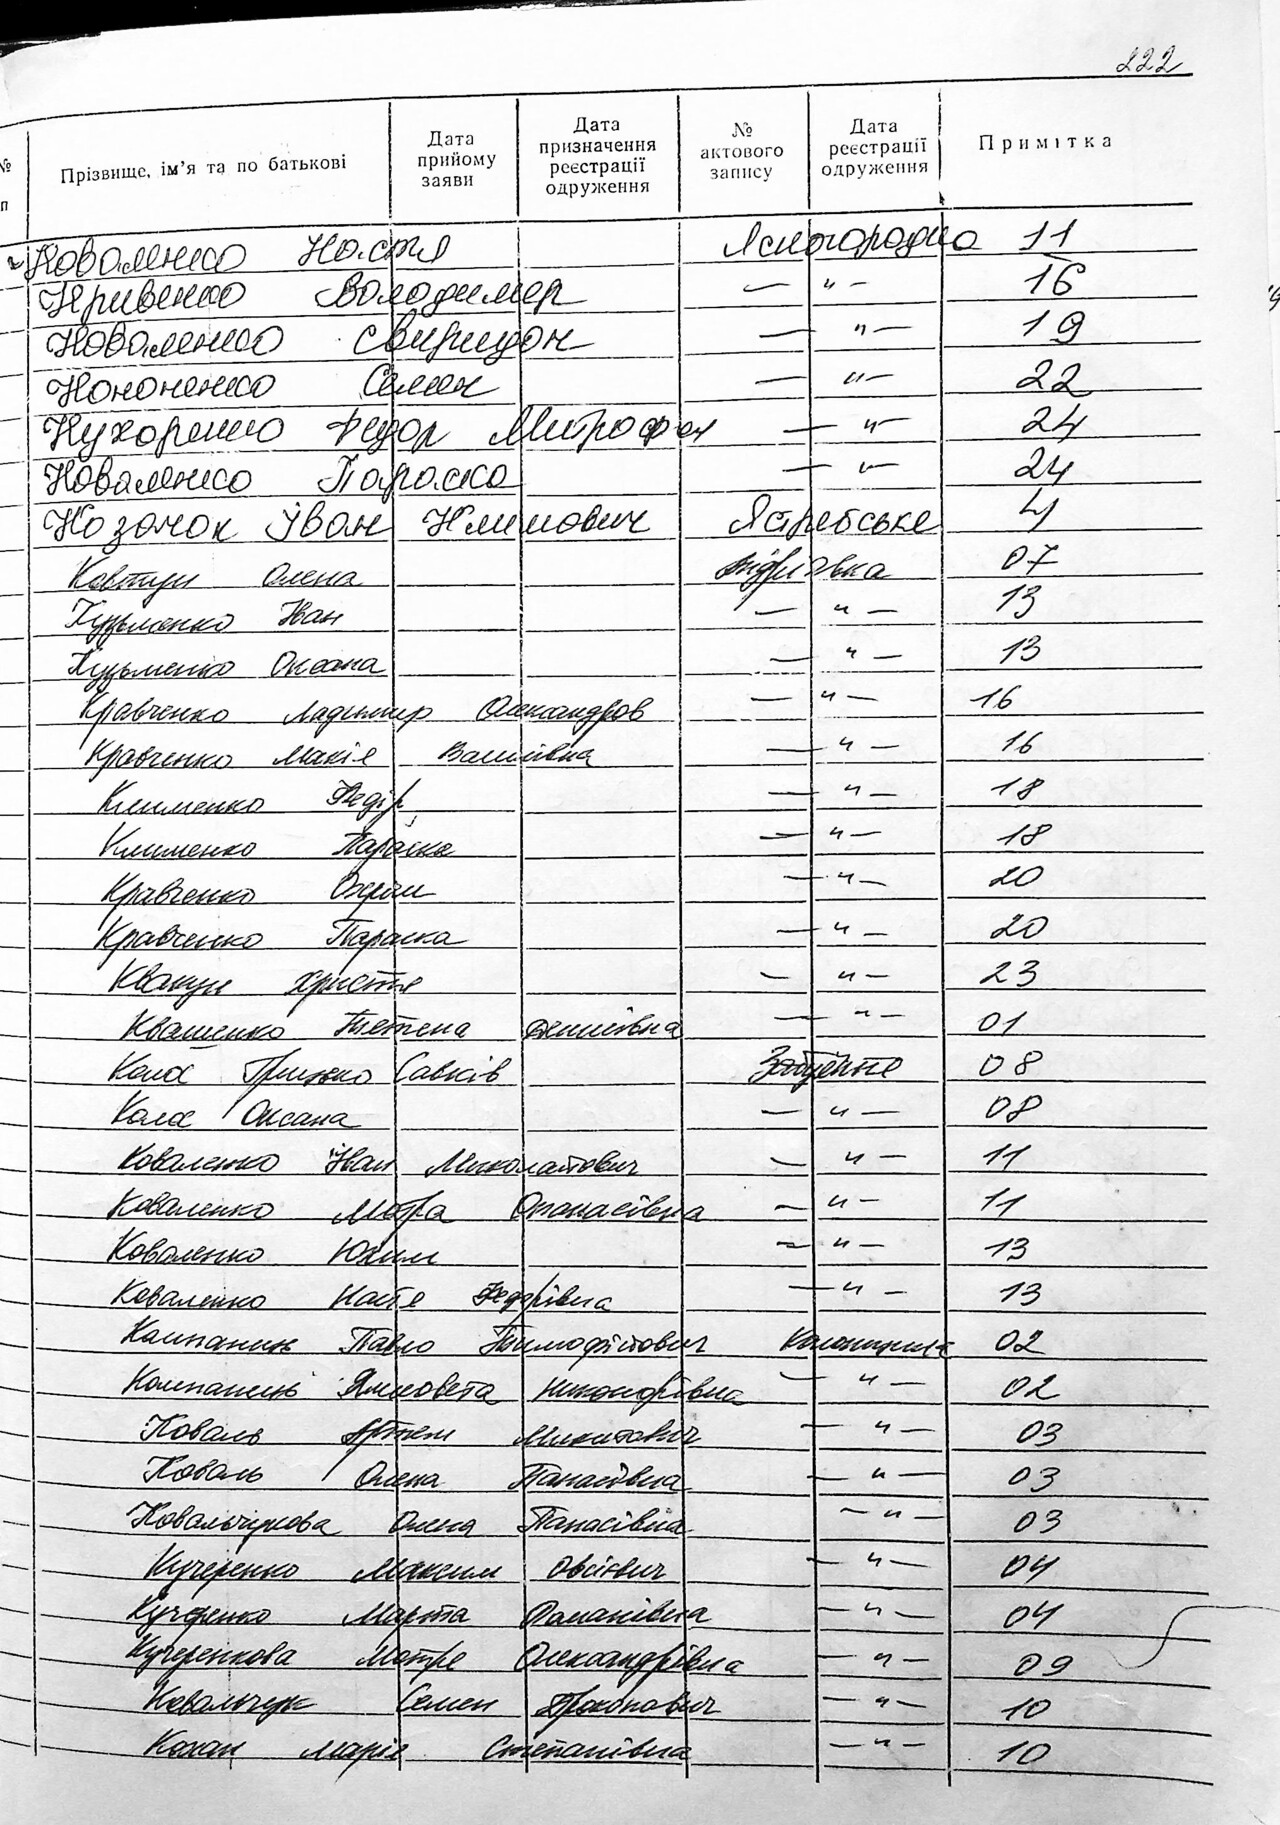 222
№
п
Прізвище, ім'я та по батькові
Дата прийому заяви
Дата призначення реєстрації одруження
№ актового запису
Дата реєстрації одруження
Примітка
Коваленко Настя Ясногородка 11
Кривенко Володимер — " — 16
Коваленко Свиридон — " — 19
Кононенко Семен — " — 22
Кухоренко Федор Митрофан — " — 24
Коваленко Параска — " — 24
Козачок Іван Климович Ястребське 4
Ковтун Олена 07
Кузьменко Іван — " — 13
Кузьменко Оксана — " — 13
Кравченко Владимир Олександров — " — 16
Кравченко Марія Василівна — " — 16
Клименко Федір — " — 18
Клименко Параска — " — 18
Кравченко Охрім — " — 20
Кравченко Параска — " — 20
Квакун Христя — " — 23
Квашенко Тетена Денисівна — " — 01
Колос Грицько Савків 08
Колос Оксана — " — 08
Коваленко Іван Миколайович — " — 11
Коваленко Мотра Опанасівна — " — 11
Коваленко Юхим — " — 13
Коваленко Настя Федорівна — " — 13
Компаниць Павло Тимофійович 02
Компанець Ялисовета Никонорівна — " — 02
Коваль Артем Микитович — " — 03
Коваль Олена Панасівна — " — 03
Ковальчукова Олена Панасівна — " — 03
Кучеренко Максим Овсієвич — " — 04
Кучеренко Марта — " — 04
Кучеренкова Мотря Олександрівна — " — 09
Ковальчук Семен Прокопович — " — 10
Кохан Марія Степанівна — " — 10